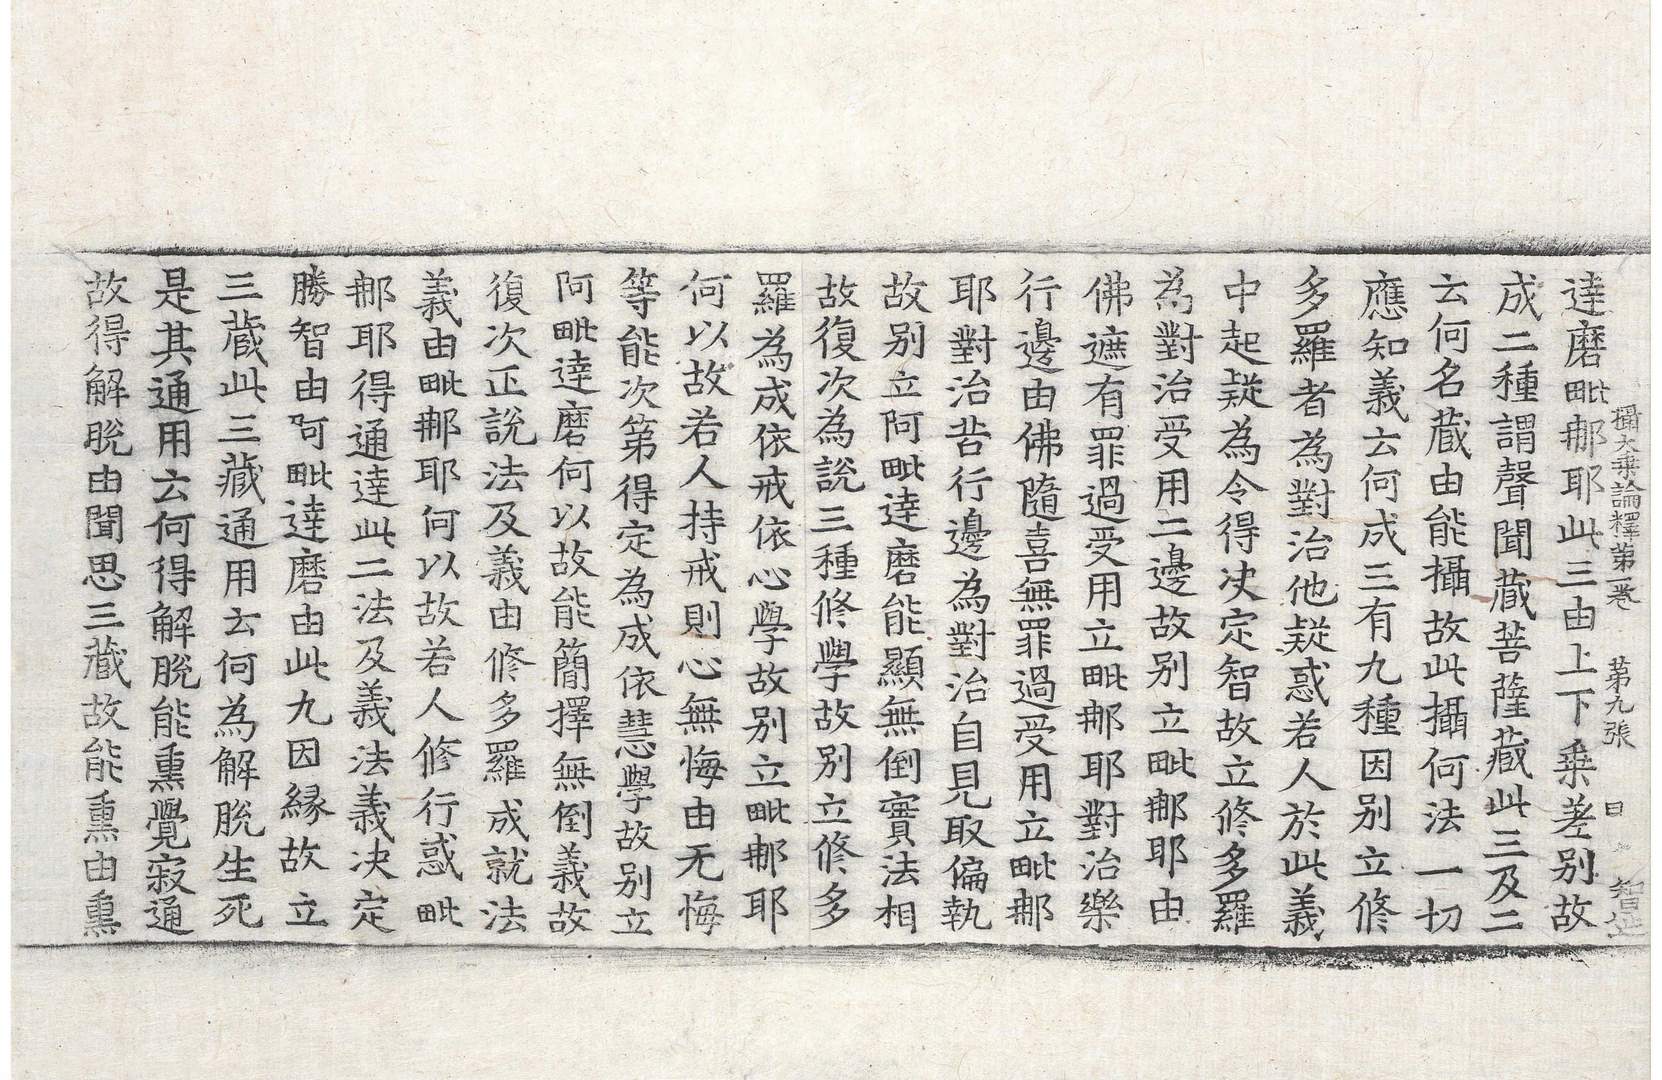 攝大乗論釋第一卷 第九張 日 智延
達磨毗那耶此三由上下乗差別故
成二種謂聲聞藏菩薩藏此三及二
云何名藏由能攝故此攝何法一切
應知義云何成三有九種因別立修
多羅者為對治他疑惑若人於此義
中起疑為令得决定智故立修多羅
為對治受用二邊故別立毗那耶由
佛遮有罪過受用立毗那耶對治樂
行邊由佛隨喜無罪過受用立毗那
耶對治苦行邊為對治自見取偏執
故別立阿毗達磨能顯無倒實法相
故復次為說三種修學故別立修多
羅為成依戒依心學故別立毗那耶
何以故若人持戒則心無悔由无悔
等能次第得定為成依慧學故別立
阿毗達磨何以故能簡擇無倒義故
復次正說法及義由修多羅成就法
義由毗那耶何以故若人修行惑毗
那耶得通達此二法及義法義决定
勝智由阿毗達磨由此九因縁故立
三藏此三藏通用云何為解脫生死
是其通用云何得解脫能熏覺寂通
故得解脫由聞思三藏故能熏由熏